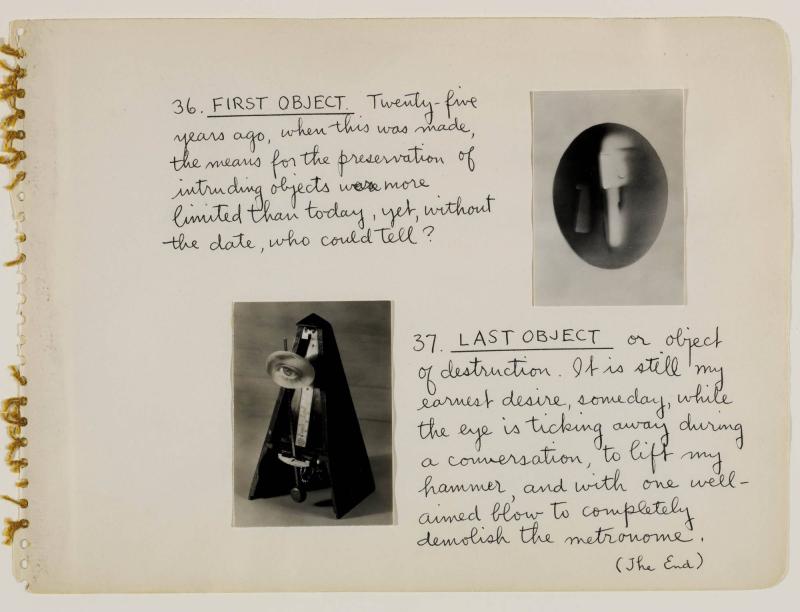 36. FIRST OBJECT. Twenty-five
years ago, when this was made,
the means for the preservation of
intruding objects were more
limited than today, yet, without
the date, who could tell?
37. LAST OBJECT or object
of destruction. It is still my
earnest desire, someday, while
the eye is ticking away during
a conversation, to lift my
hammer, and with one well-
aimed blow to completely
demolish the metronome.
(The End)